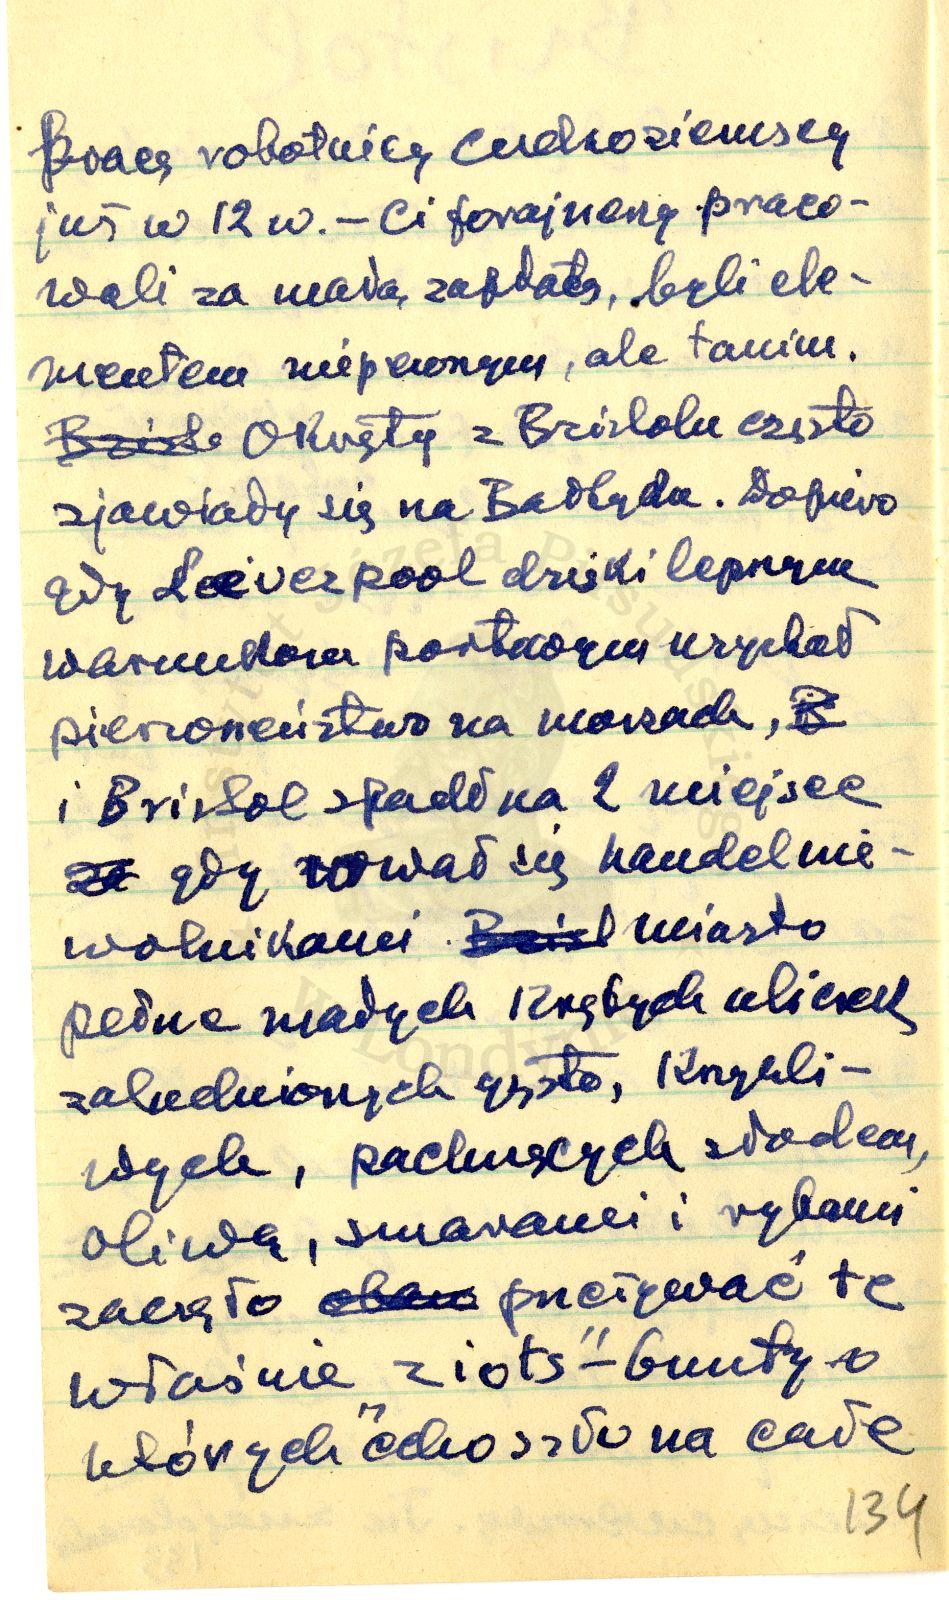 Pracą robotnicy cudzoziemscy
już w 12 w. – Ci forajnerzy praco-
wali za małą zapłatą, byli ele-
mentem niepewnym, ale tanim.
Okręty z Bristolu często
zjawiały się na Bałtyku. Dopiero
gdy Liverpool dzięki lepszym
warunkom portowym uzyskał
pierwszeństwo na morzach,
i Bristol spadł na 2 miejsce
gdy rwał się handel nie-
wolnikami. miasto
pełne małych krętych uliczek
zaludnionych gęsto, krzykli-
wych, pachnących słodem,
oliwą, smarami i rybami
zaczęło przeżywać te
właśnie "riots" – bunty o
których echo szło na całe
134